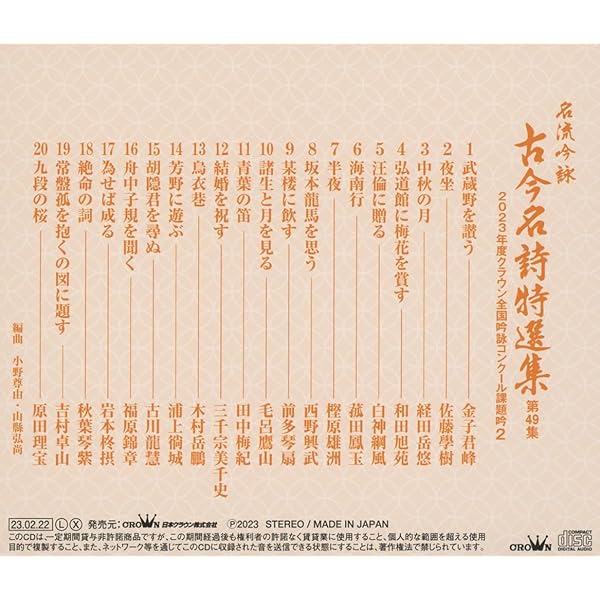 名流吟詠
古今名詩特選集 第49集
2023年度クラウン全国吟詠コンクール課題吟2
1 武蔵野を讃う 金子君峰
2 夜坐 佐藤學樹
3 中秋の月 経田岳悠
4 弘道館に梅花を賞す 和田旭苑
5 汪倫に贈る 白神綱風
6 海南行 菰田鳳玉
7 半夜 樫原雄洲
8 坂本龍馬を思う 西野興武
9 某楼に飲す 前多琴扇
10 諸生と月を見る 毛呂鷹山
11 青葉の笛 田中梅紀
12 結婚を祝す 三千宗美千史
13 烏衣巷 木村岳鵬
14 芳野に遊ぶ 浦上徜城
15 胡隠君を尋ぬ 古川龍慧
16 舟中子規を聞く 福原錦章
17 為せば成る 岩本柊摂
18 絶命の詞 秋葉琴紫
19 常盤孤を抱くの図に題す 吉村卓山
20 九段の桜 原田理宝
編曲 小野尊由・山縣弘尚
23.02.22 L X 発売元: CROWN 日本クラウン株式会社 ℗2023 STEREO / MADE IN JAPAN
このCDは、一定期間貸与非許諾商品ですが、この期間経過後も権利者の許諾なく賃貸業に使用すること、個人的な範囲を超える使用
目的で複製すること、また、ネットワーク等を通じてこのCDに収録された音を送信できる状態にすることは、著作権法で禁じられています。
CROWN
COMPACT
disc
DIGITAL AUDIO